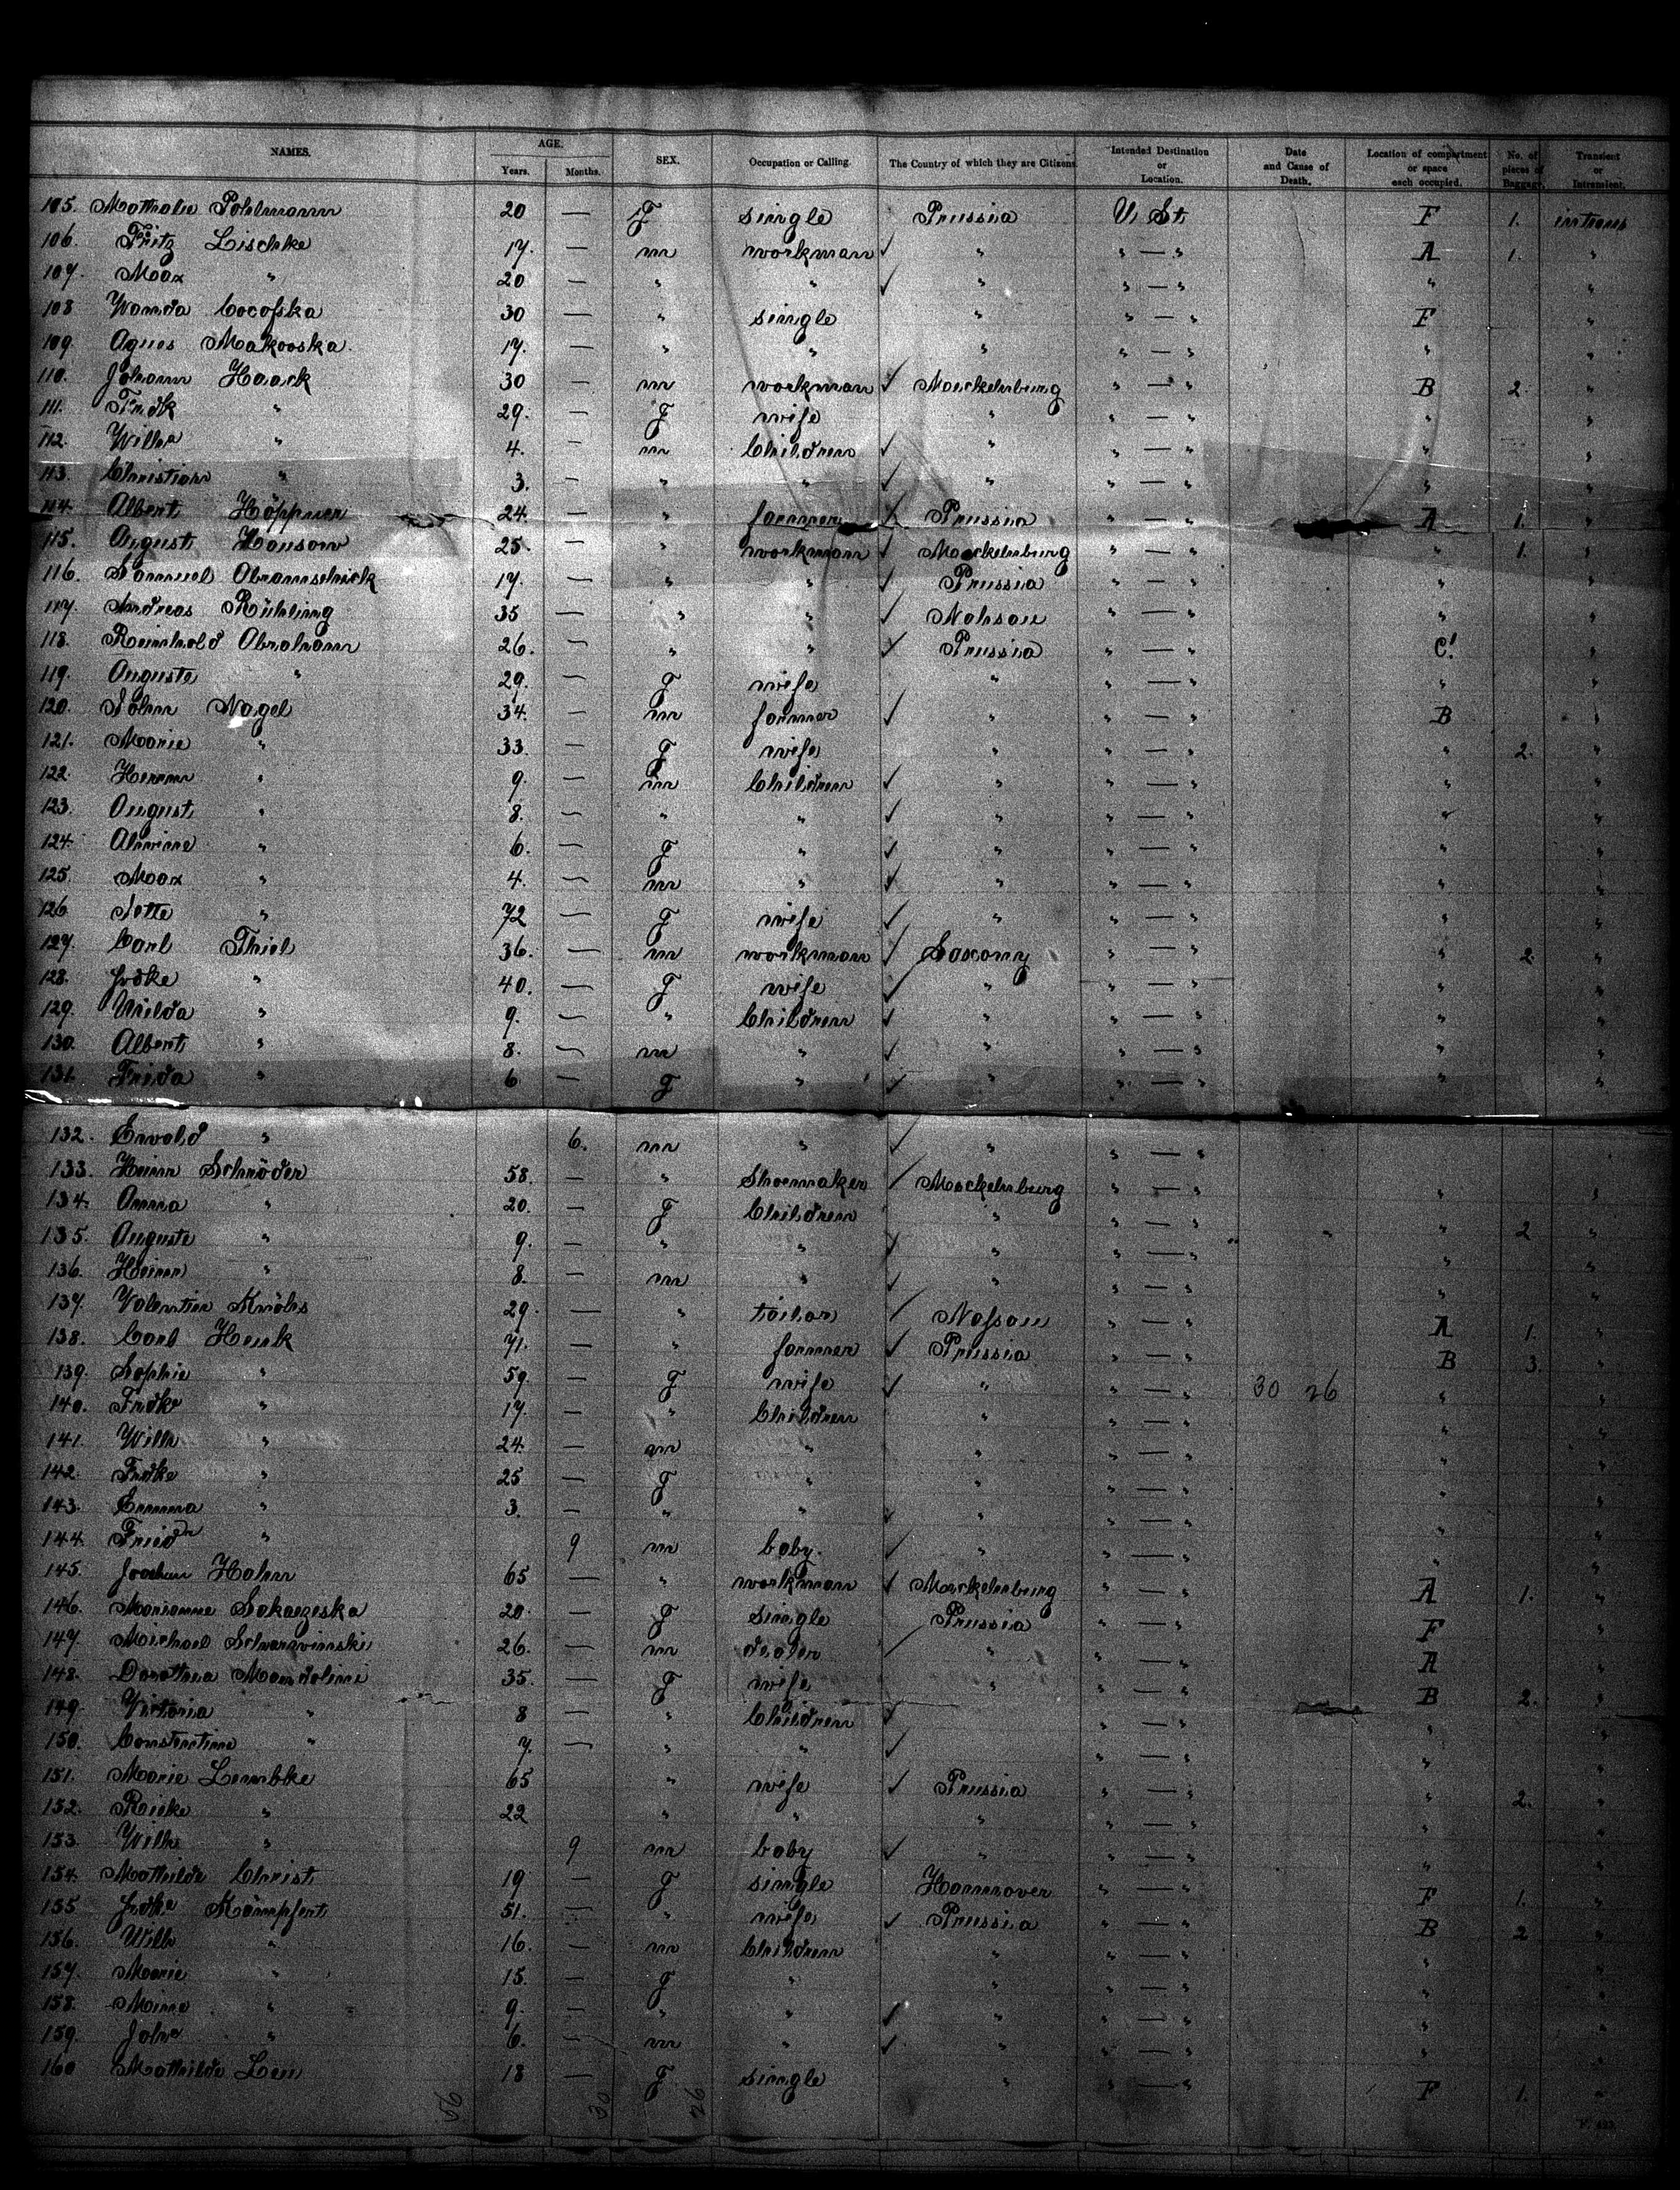 NAMES. AGE. Years. Months. SEX. Occupation or Calling. The Country of which they are Citizens. Intended Destination or Location. Date and Cause of Death. Location of compartment or space each occupied. No. of pieces of Baggage. Transient or Intransient.
105. Mathalie Pohlmann 20 — F single Prussia U St F 1. intrans
106. Fritz Lischke 17. — m workman ✓ " " — " A 1. "
107. Max " 20 — " " ✓ " " — " " "
108 Wanda Cocofska 30 — " single " " — " F "
109. Agnes Makooska 17. — " " " " — " " "
110. Johann Haack 30 — m workman ✓ Meckelnburg " — " B 2. "
111. Fridk " 29. — F wife " " — " " "
112. Wilha " 4. — m Children ✓ " " — " " "
113. Christian " 3. — " " ✓ " " — " " "
114. Albert Höppner 24. — " farmer ✓ Prussia " — " A 1. "
115. August Hausow 25. — " workman ✓ Meckelnburg " — " " 1. "
116. Samuel Abramschick 17. — " " ✓ Prussia " — " " "
117. Andreas Rühling 35 — " " ✓ Nahsau " — " " "
118. Reinhold Abraham 26. — " " ✓ Prussia " — " C! "
119. Auguste " 29. — F wife " " — " " "
120. John Nagel 34. — m farmer ✓ " " — " B "
121. Marie " 33. — F wife " " — " " 2. "
122. Herrm " 9. — m Children ✓ " " — " " "
123. August " 8. — " " ✓ " " — " " "
124. Alwine " 6. — F " ✓ " " — " " "
125. Max " 4. — m " ✓ " " — " " "
126. Jette " 72 — F wife ✓ " " — " " "
127. Carl Thiel 36. — m workman ✓ Saxony " — " " 2. "
128. Frdke " 40. — F wife ✓ " " — " " "
129. Hilda " 9. — " Children ✓ " " — " " "
130. Albert " 8. — m " ✓ " " — " " "
131. Frida " 6 — F " ✓ " " — " " "
132. Ewald " 6. m " ✓ " " — "
133. Heinr Schröder 58. — " Shoemaker ✓ Meckelnburg " — " " "
134. Anna " 20. — F Children " " — " " 2 "
135. Auguste " 9. — " " ✓ " " — " " "
136. Heinr " 8. — m " ✓ " " — " " "
137. Valentin Knöbs 29. — " tailor ✓ Nassau " — " A 1. "
138. Carl Henk 71. — " farmer ✓ Prussia " — " B 3. "
139. Sophie " 59. — F wife ✓ " " — " 30 26 " "
140. Frdke " 17. — " Children " " — " " "
141. Wilh " 24. — m " " " — " " "
142. Frdke " 25 — F " " " — " " "
143. Emma " 3. — " " ✓ " " — " " "
144. Friedr " 9 m baby. ✓ " " — " " "
145. Jochim Hahn 65 — " workman ✓ Meckelnburg " — " A 1. "
146. Marianne Sakaezeska 20. — F Single Prussia " — " F "
147. Michael 26. — m dealer ✓ " " — " A "
148. Dorothea Mandolini 35. — F wife " " — " B 2. "
149. Victoria " 8 — " Children ✓ " — " " "
150. Constantine " 7. — " " ✓ " — " " "
151. Marie Lembke 65 " wife ✓ Prussia " — " " 2. "
152. Rieke " 22 " " " " — " " "
153. Wilh " 9 m baby ✓ " " — " " "
154. Mathilde Christ 19 — F single Hannover " — " F 1. "
155 Frdke Kämpfert 51. — " wife ✓ Prussia " — " B 2 "
156. Wilh " 16. — m Children " " — " " "
157. Marie " 15. — F " " " — " " "
158. Minna " 9. — " " ✓ " " — " " "
159. Joha " 6. — m " ✓ " " — " " "
160 Mathilde Leu 18 — F single " " — " F 1. "
56 30 26